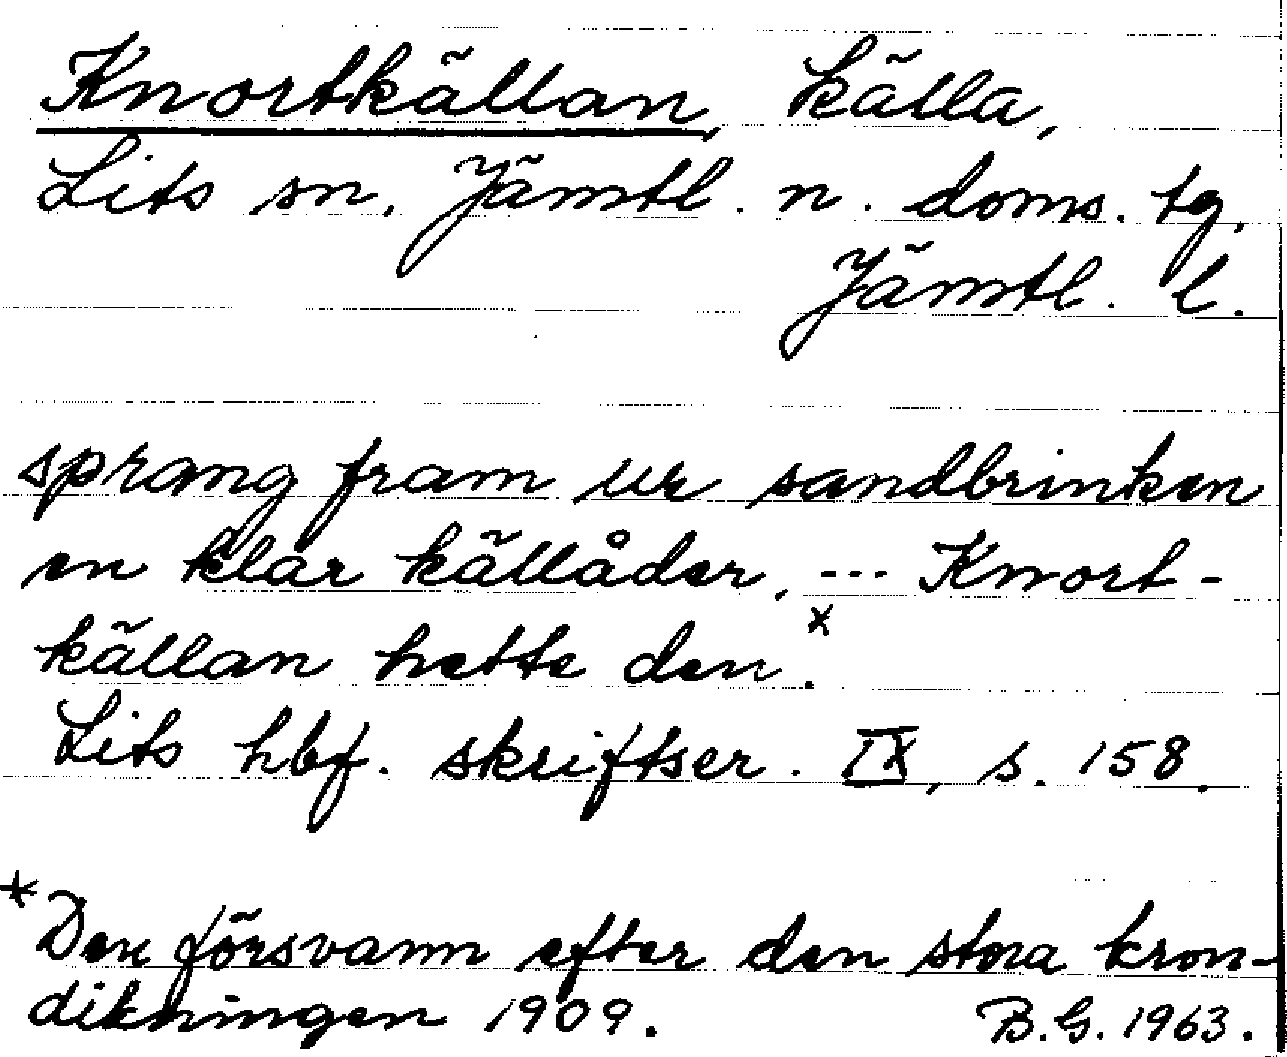 Knortkällan, källa,
Lits sn. Jämtl. n. doms. tg.
Jämtl. l.
sprang fram ur sandbrinken
en klar källåder, --- Knort-
källan hette den.*
Lits hbf. skriftser. IX, s. 158.
*Den försvann efter den stora kron-
dikningen 1909. B.G. 1963.